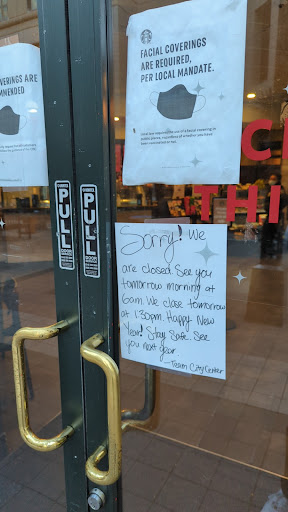 FACIAL COVERINGS
ARE REQUIRED,
PER LOCAL MANDATE.
COVERINGS ARE
PULL
PULL
THI
Sorry! We
are closed. See you
tomorrow morning at
6am. We close tomorrow
at 1:30pm. Happy New
Year! Stay Safe. See
you next year
-Team City Center